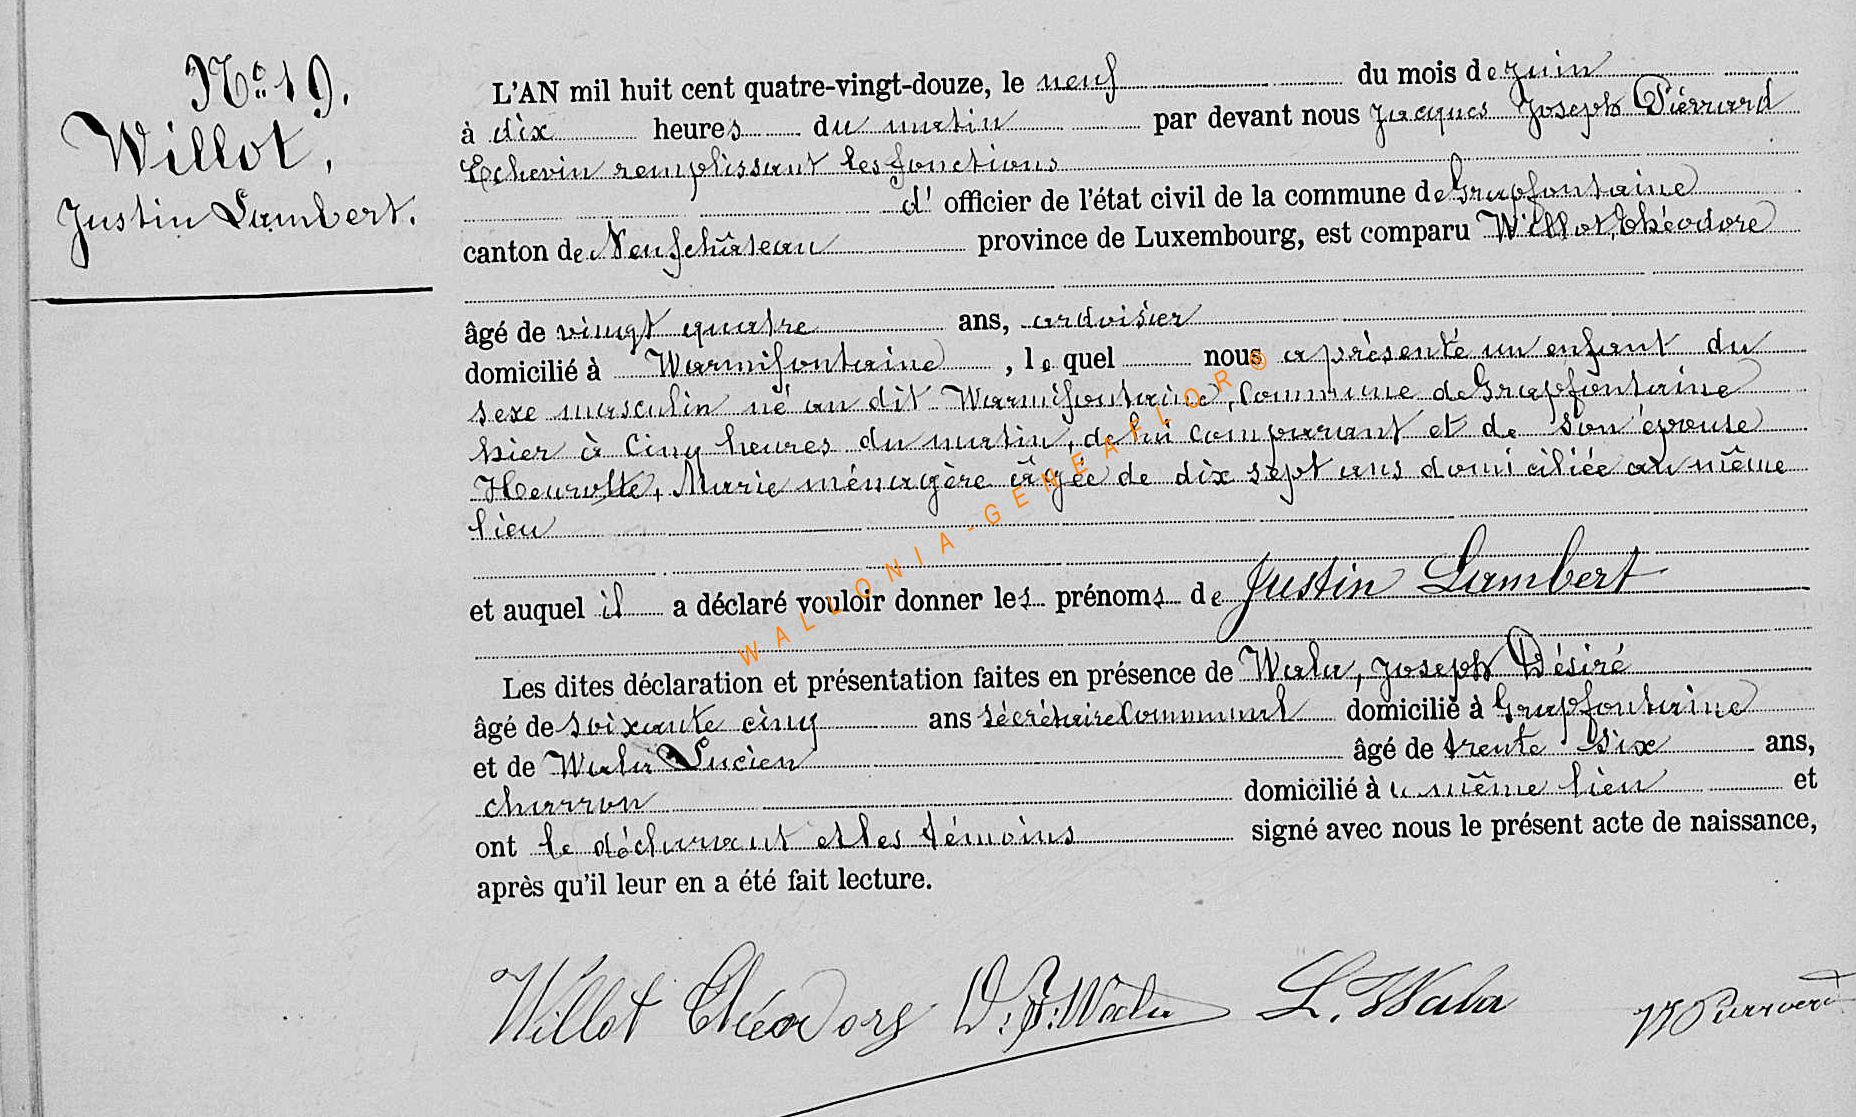 No 19.
Willot,
Justin Lambert.
L'AN mil huit cent quatre-vingt-douze, le neuf du mois de juin
à dix heures du matin par devant nous Jacques Joseph Piérrard
Echevin remplissant les fonctions
d' officier de l'état civil de la commune de Grapfontaine
canton de Neufchâteau province de Luxembourg, est comparu Willot, Théodore
âgé de vingt quatre ans, ardoisier
domicilié à Warmifontaine, le quel nous a présenté un enfant du
sexe masculin né au dit Warmifontaine, Commune de Grapfontaine
hier à cinq heures du matin, de lui comparant et de son épouse
Heurotte, Marie ménagère âgée de dix sept ans domiciliée au même
lieu
et auquel il a déclaré vouloir donner les prénoms de Justin Lambert
Les dites déclaration et présentation faites en présence de Wala, Joseph Désiré
âgé de soixante cinq ans sécrétaire Communal domicilié à Grapfontaine
et de Wala Lucien âgé de trente six ans,
charron domicilié à u même lieu et
ont le déclarant et les témoins signé avec nous le présent acte de naissance,
après qu'il leur en a été fait lecture.
Willot Théodore D. J. Wala L. Wala
WALLONIA-GENEAFLOR©